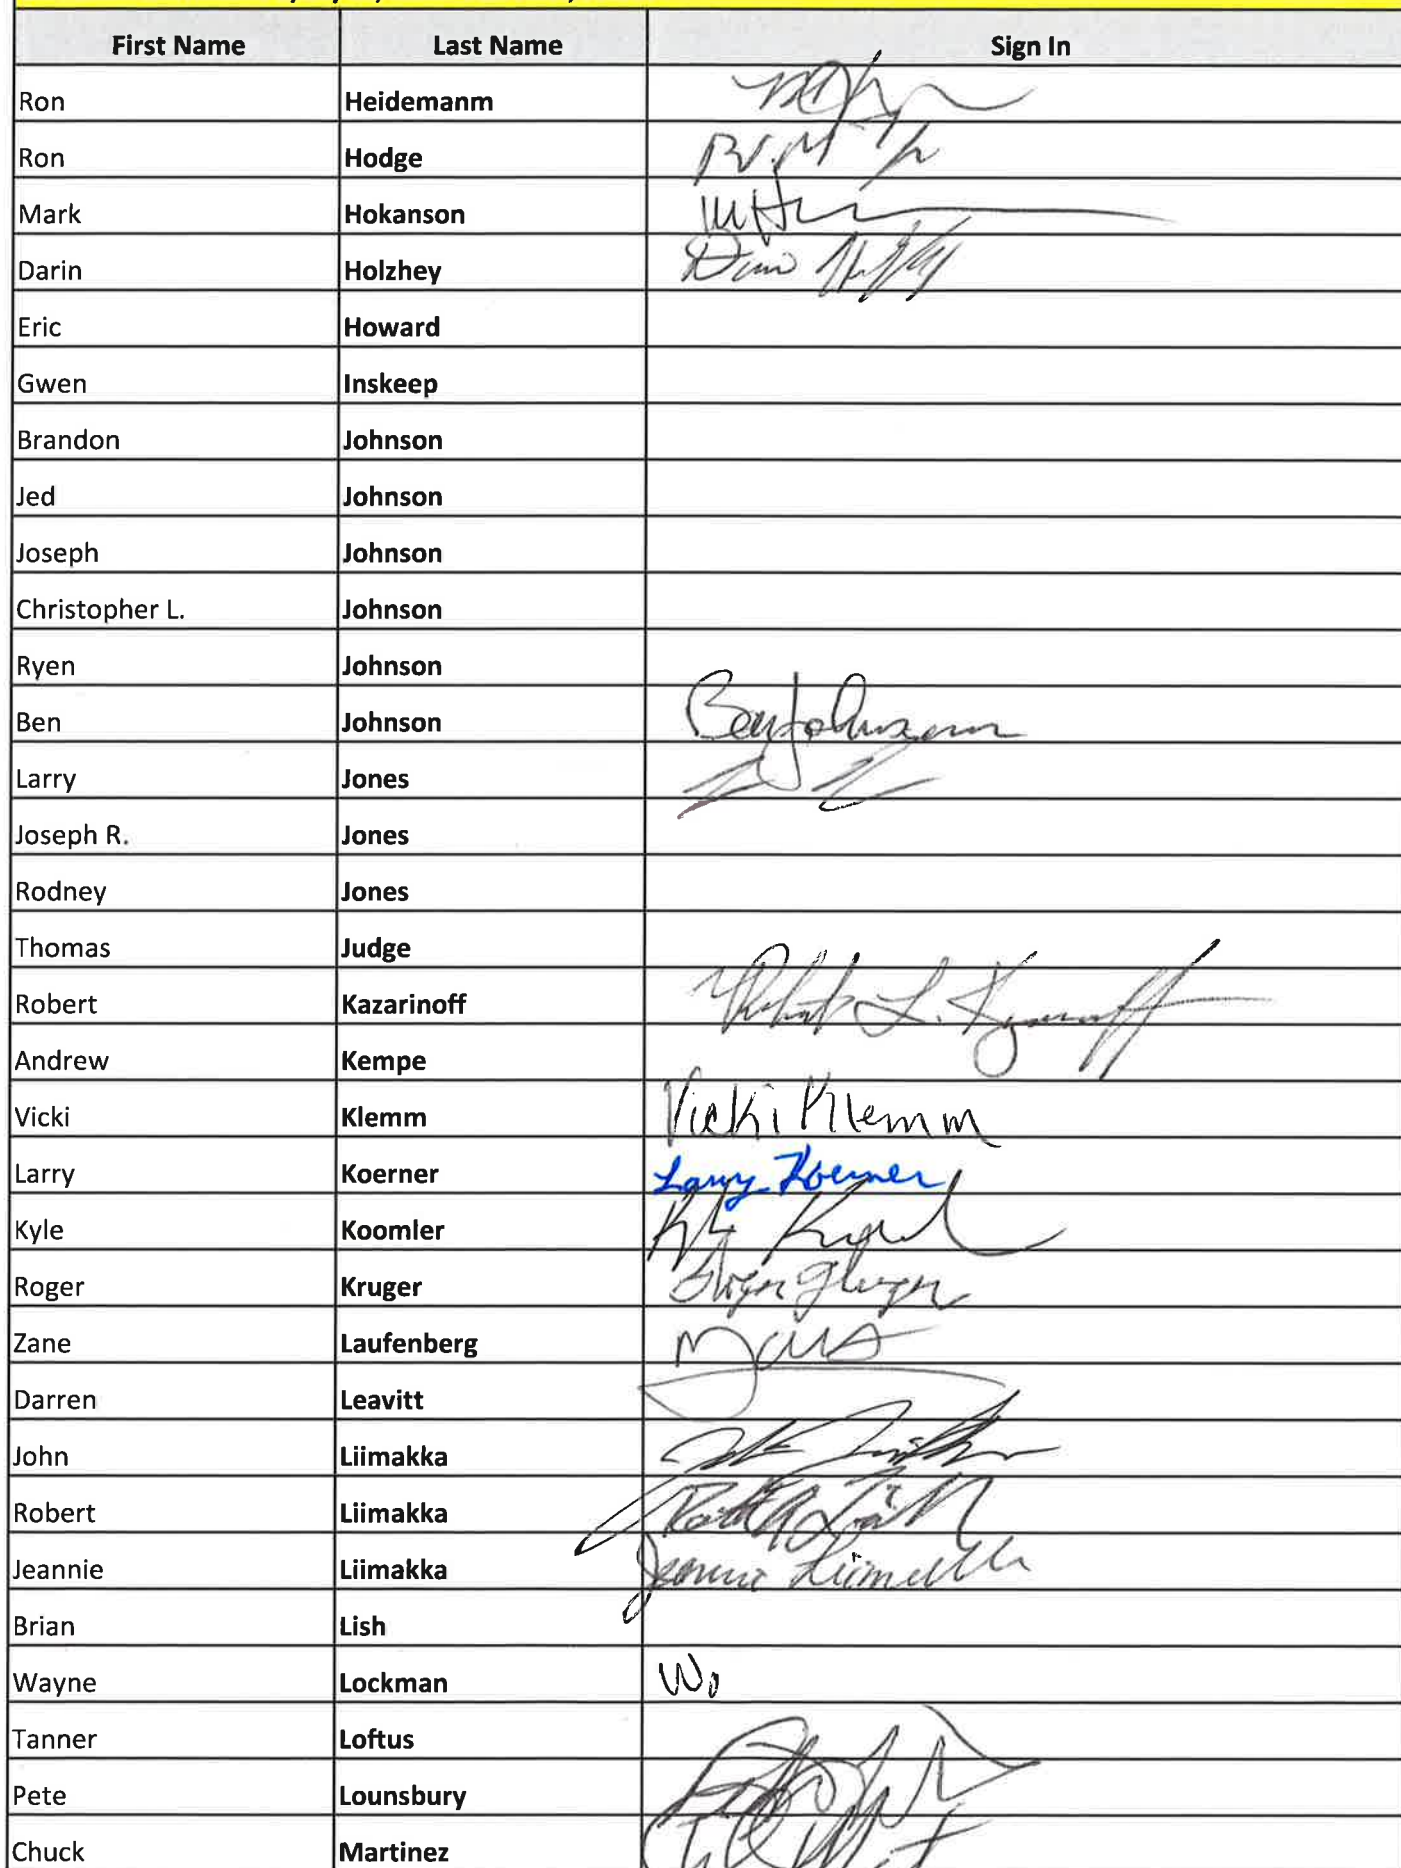 First Name Last Name Sign In
Ron Heidemanm
Ron Hodge
Mark Hokanson
Darin Holzhey
Eric Howard
Gwen Inskeep
Brandon Johnson
Jed Johnson
Joseph Johnson
Christopher L. Johnson
Ryen Johnson
Ben Johnson Ben Johnson
Larry Jones
Joseph R. Jones
Rodney Jones
Thomas Judge
Robert Kazarinoff Robert L. Kazarinoff
Andrew Kempe
Vicki Klemm Vicki Klemm
Larry Koerner Larry Koerner
Kyle Koomler
Roger Kruger
Zane Laufenberg
Darren Leavitt
John Liimakka
Robert Liimakka
Jeannie Liimakka Jeannie Liimakka
Brian Lish
Wayne Lockman
Tanner Loftus
Pete Lounsbury
Chuck Martinez